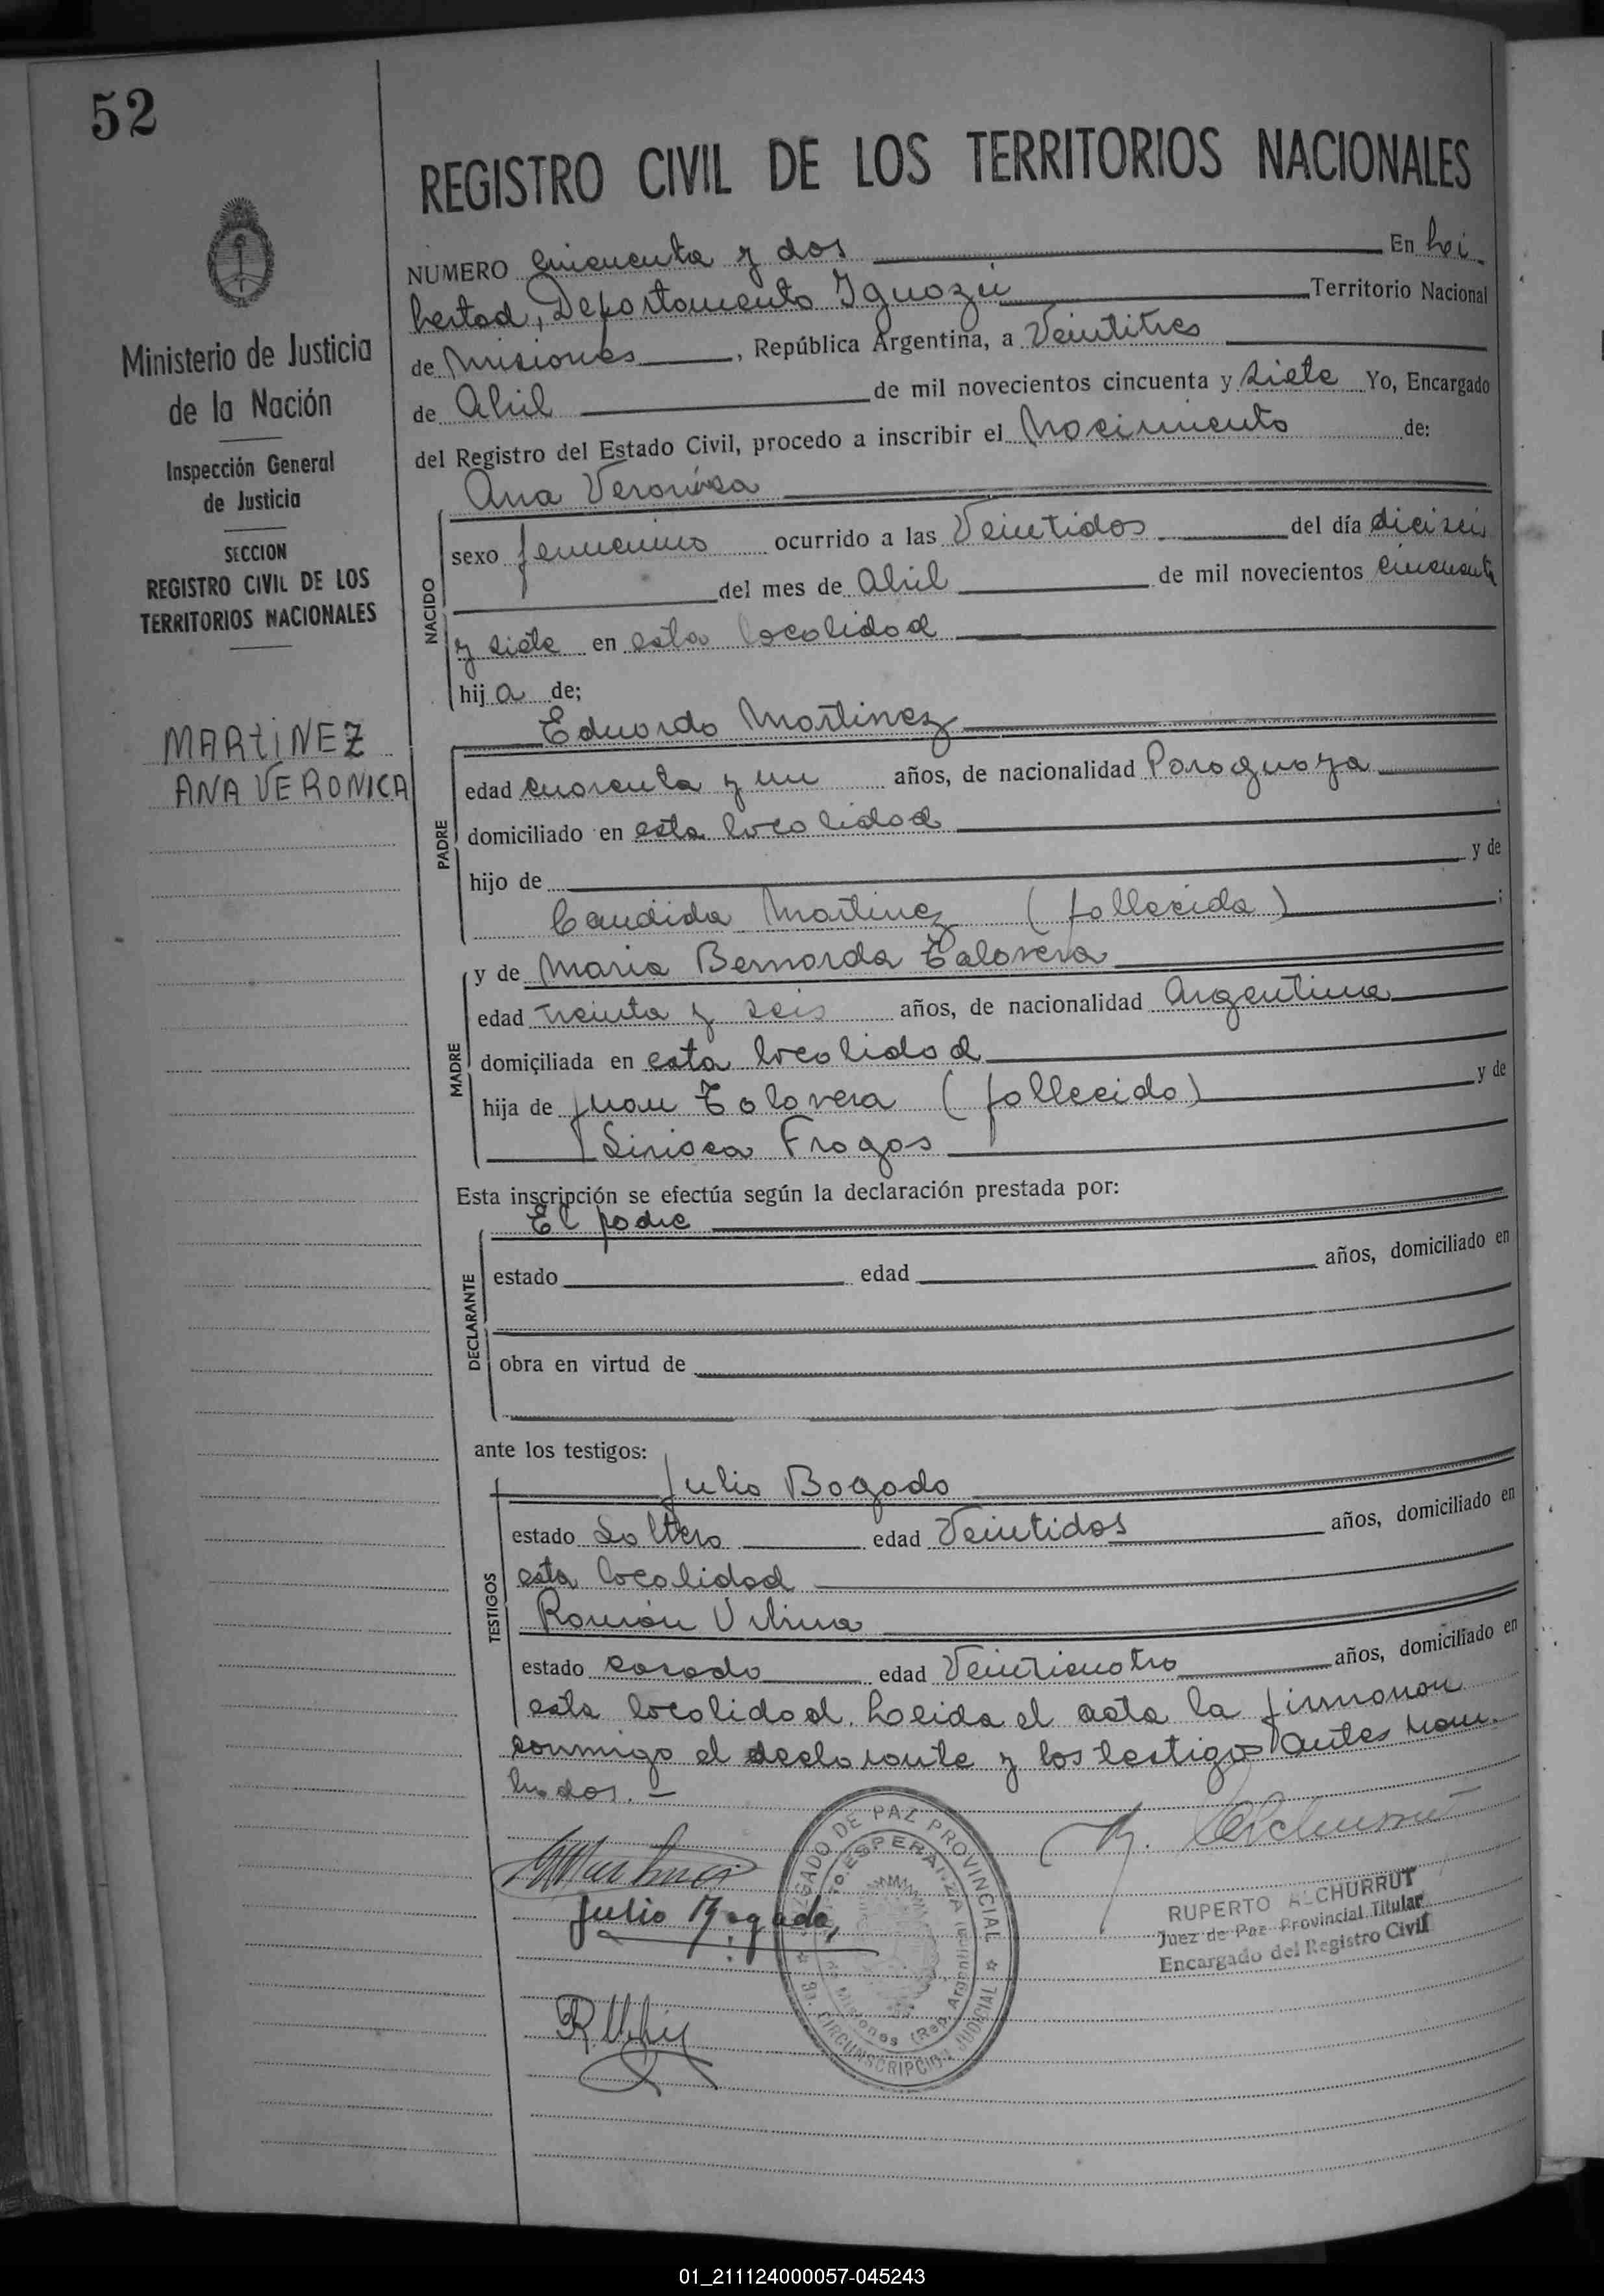 52
REGISTRO CIVIL DE LOS TERRITORIOS NACIONALES
Ministerio de Justicia
de la Nación
Inspección General
de Justicia
SECCION
REGISTRO CIVIL DE LOS
TERRITORIOS NACIONALES
MARTINEZ
ANA VERONICA
NUMERO Cincuenta y dos En Li-
bertad, Departamento Iguazú Territorio Nacional
de Misiones, República Argentina, a Veintitres
de Abril de mil novecientos cincuenta y siete Yo, Encargado
del Registro del Estado Civil, procedo a inscribir el Nacimiento de:
Ana Veronica
NACIDO
sexo femenino ocurrido a las Veintidos del día dieciseis
del mes de Abril de mil novecientos cincuenta
y siete en esta localidad
hija de;
Eduardo Martinez
PADRE
edad cuarenta y un años, de nacionalidad Paraguaya
domiciliado en esta localidad
hijo de y de
Candida Martinez (fallecida) ;
y de Maria Bernarda Talavera
MADRE
edad Treinta y seis años, de nacionalidad Argentina
domiciliada en esta localidad
hija de Juan Talavera (fallecido) y de
Fragos
Esta inscripción se efectúa según la declaración prestada por:
El padre
DECLARANTE
estado edad años, domiciliado en
obra en virtud de
ante los testigos:
Julio Bogado
TESTIGOS
estado Soltero edad Veintidos años, domiciliado en
esta localidad
Ramón
estado casado edad Veinticuatro años, domiciliado en
esta localidad. Leida el acta la firmaron
conmigo el declarante y los testigos antes nom-
brados. -
Julio Bogado
JUZGADO DE PAZ PROVINCIAL
PTO. ESPERANZA
Misiones (Rep. Argentina)
CIRCUNSCRIPCION JUDICIAL
RUPERTO ALCHURRUT
Juez de Paz Provincial Titular
Encargado del Registro Civil
01_211124000057-045243